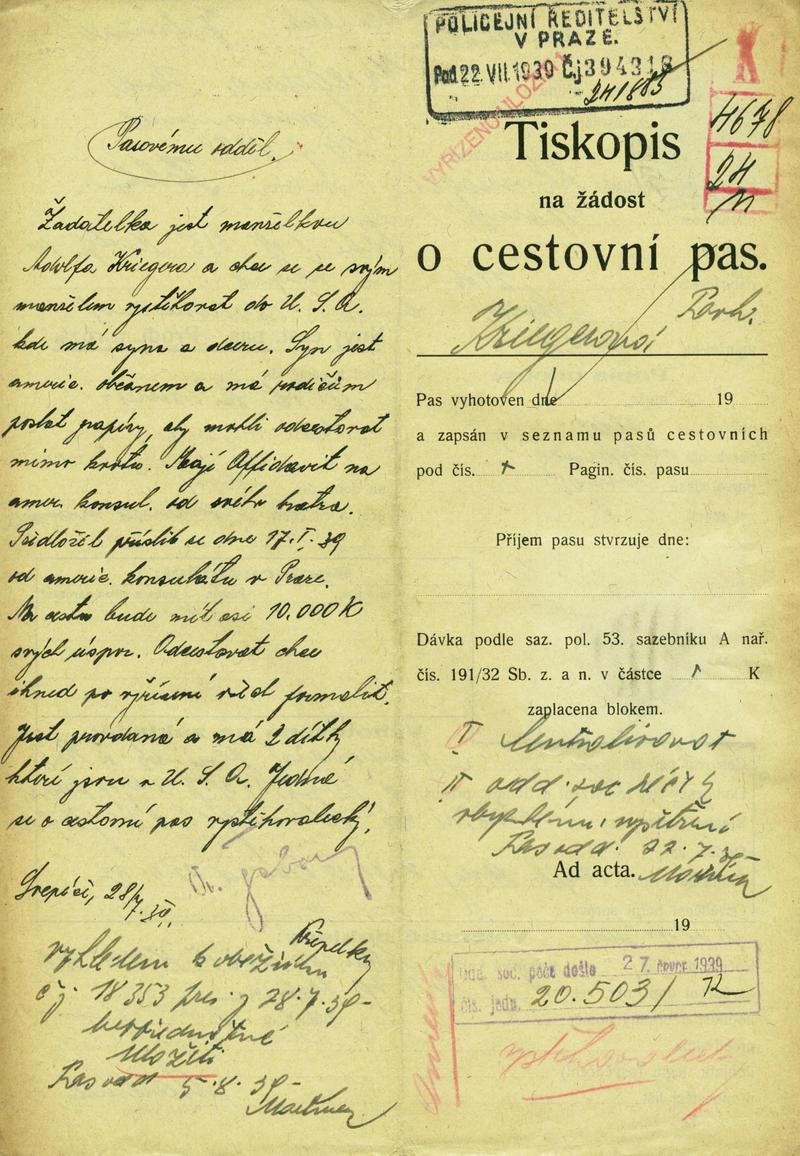 Pasovému odděl.
Žadatelka jest manželkou
Adolfa Kriegera a chce se se svým
manželem vystěhovat do U. S. A.
kde má syna a dceru. Syn jest
americ. občanem a má rodičům
poslat papíry, aby mohli odcestovat
mimo kvotu. Mají Affidavit na
amer. konsul. od svého bratra.
Předložil příslib ze dne 17. I. 39
od americ. konsulátu v Praze.
Na cestu bude mít asi 10.000 K
svých úspor. Odcestovat chce
ihned po vyřízení všech formalit.
Jest provdaná a má 2 dítky
kteří jsou v U. S. A. Jedná
se o cestovní pas vystěhovalecký.
28/7. 39.
Vzhledem k oběžníku
čj. 18353 pres. z 28.7.39-
bezpředmětné
Uložiti
Pas odd 5.8.39-
POLICEJNÍ ŘEDITELSTVÍ
V PRAZE.
Pod. 22. VII. 1939 Čj 394318
241885
VYŘÍZENO ULOŽENO
4678
24
Tiskopis
na žádost
o cestovní pas.
Kriegerová
Pas vyhotoven dne 19
a zapsán v seznamu pasů cestovních
pod čís. Pagin. čís. pasu
Příjem pasu stvrzuje dne:
Dávka podle saz. pol. 53. sazebníku A nař.
čís. 191/32 Sb. z. a n. v částce K
zaplacena blokem.
I Centralisovat
II odd. soc. péče k
Pas odd. 22.7.39-
Ad acta.
19
Odd. soc. péče došlo 27. červ. 1939
čís. jedn. 20.503/
vystěhovalect